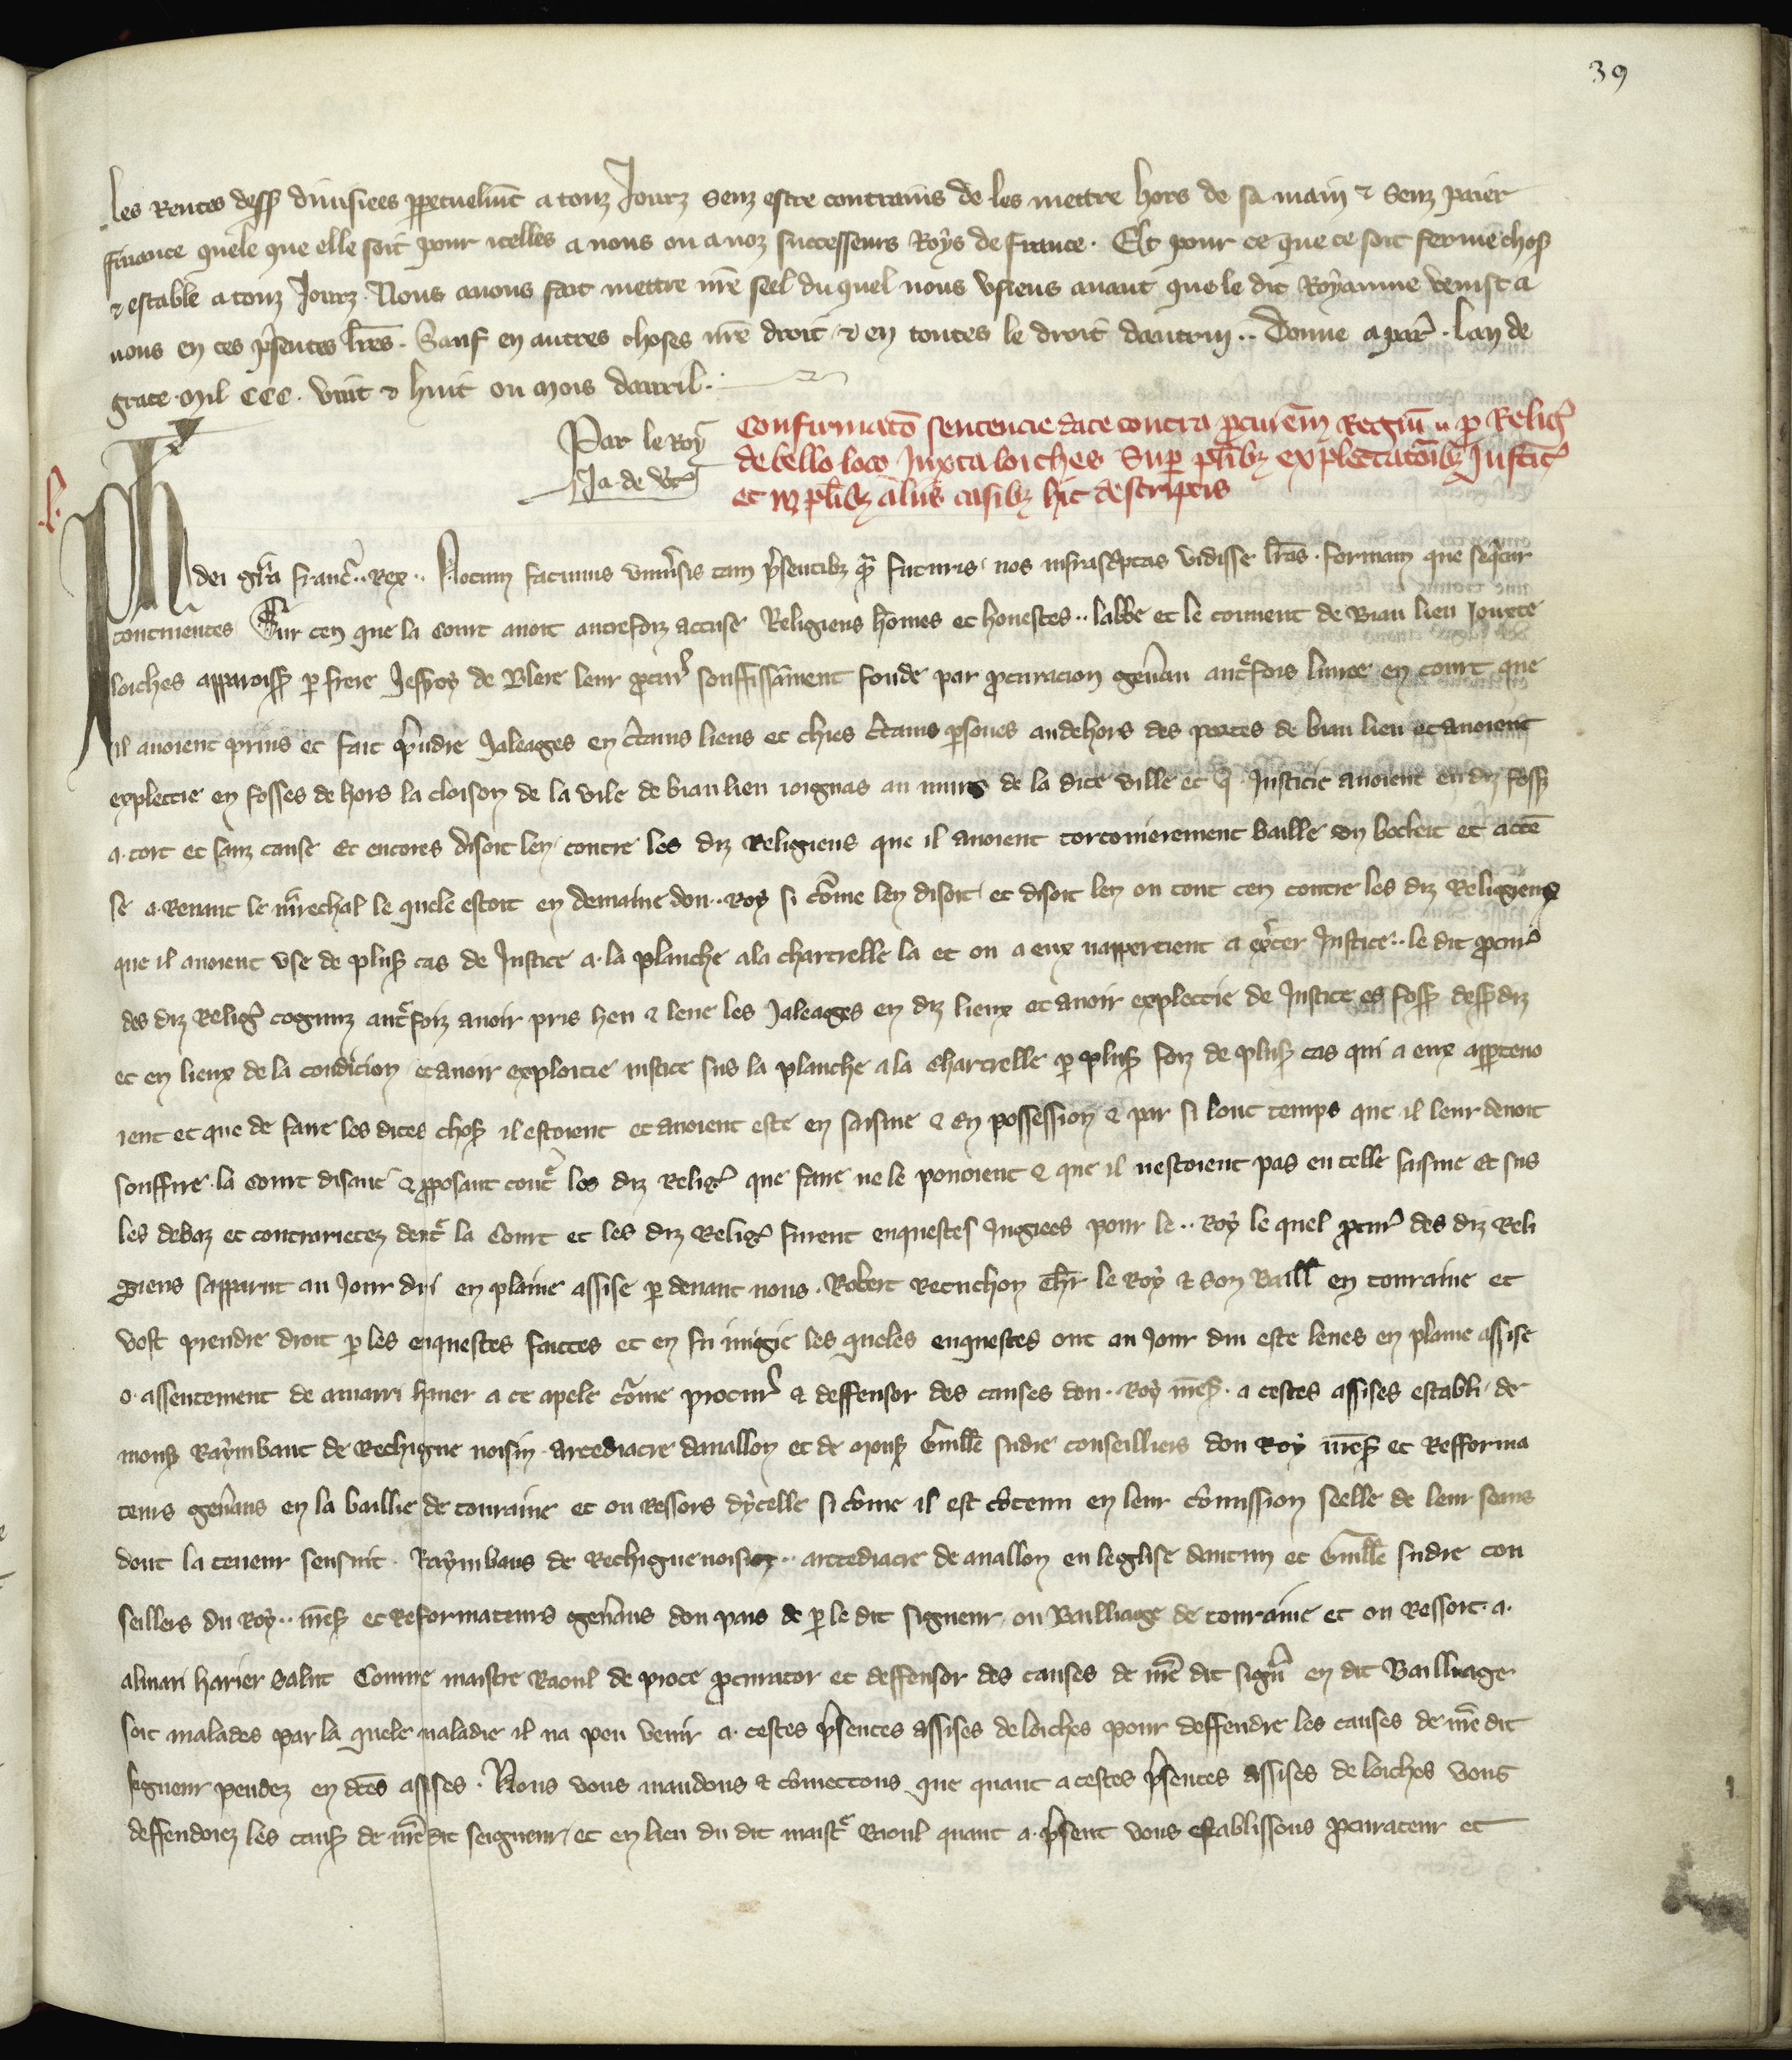 39
les Rentes dess9 diuisees ppetuelmt a touz Jourz senz estre contrains de les mettre hors de sa main & senz paier
finance quele que elle soit pour icelles a nous ou a noz successeurs Roys de france. Et pour ce que ce soit ferme chose
& estable a touz Jourz. Nous auons fait mettre nre seel du quel nous vsiens auant que le dit Royaume venist a
nous en ces psentes lres. Sauf en autres choses nre droit & en toutes le droit dautrui.. Donne a par. Lan de
grace mil CCC. vint & huit ou mois dauril.
Par le Roy
Ja. de
Confirmato sentencie date contra pcurem Regiu p Relig
de bello loco Juxta loiches Sup plibz explectatoibz Justic
et in plibz aliis casibz hic descriptis
Ph dei gra franc.. Rex.. Notum facimus vniusis tam psentibz qm futuris nos infrascptas vidisse lras. formam que sequitur
continentes Sur cen que la court auoit autrefoiz accuse Religieus homes et honestes.. labbe et le couuent de Biau lieu Jouxte
loiches apparoiss p frere Jefroy de Blere leur pcur souffissament fonde par pcuracion genau autfois liuree en court que
il auoient prins et fait pndre Jaleages en ctains lieus et chies ctains psones au dehors des portes de biau lieu et auoient
explectie en fosses de hors la cloison de la vile de biaulieu ioignas au murs de la dite ville et q Justicie auoient en diz foss
a. tort et sanz cause et encores disoit len contre les diz Religieus que il auoient torconierement baille et acce
se a. Renaut le mrechal le quele estoit en demaine dou.. Roy si come len disoit et disoit len ou tout cen contre les diz Religieux
que il auoient vse de plus cas de Justice a. la planche a la chartrelle la et ou a eux napptient a excer Justice.. le dit pcur
des diz Relig cognuz autfoiz auoir pris heu & leue les Jaleages en diz lieux et auoir explectie de Justice es foss dessdiz
et en lieux de la condicion et auoir exploitie iustice sus la planche a la chartrelle p plus foiz de plus cas qui a eux appteno
ient et que de faire les dites chos il estoient et auoient este en saisine & en possession & par si lonc temps que il leur deuoit
souffire. la court disant & pposant contre les diz Relig que faire ne le pouoient & que il nestoient pas en celle saisine Et sus
les debaz et contrarietez dentre la Court et les diz Relig furent enquestes Jugiees pour le.. Roy le quel pcur des diz Reli
gieus sapparut au Jour dui en plaine assise p deuant nous. Robert Recuchon chr le Roy & son Baill en touraine et
vost prendre droit p les enquestes faictes et en fu iugie les queles enquestes ont au Jour dui este leues en plaine assise
o. assentement de amarri hauer a ce apele come procur & deffensor des causes dou. Roy mes. a cestes assises establi de
mons Raymbaut de Rechigne noisin arcediacre daualon et de mons Guille sudre conseilliers dou Roy nres et Refforma
teurs genaus en la baillie de touraine et ou Ressors dycelle si come il est cotenu en leur comission seelle de leur seaus
dont la teneur sensuit. Raymbaus de Rechignenoisin.. arcediacre de auallon en leglise dautun et Guille sudre con
seillers du Roy.. mes et Reformateurs genaus dou pais de p le dit signeur ou Bailliage de touraine et ou Ressort. a.
almari harier Salut Comme maistre Raoul de proce pcurator et deffensor des causes de nre dit sign en dit Bailliage
soit malades par la quele maladie il na peu venir a. cestes psentes assises de loiches pour deffendre les causes de nre dit
segneur pendez en dces assises. Nous vous mandons & comectons que quant a cestes psentes assises de loiches vous
deffendoiez les caus de nre dit seigneur et en lieu du dit maistre Raoul quant a. psent vous establissons pcurateur et